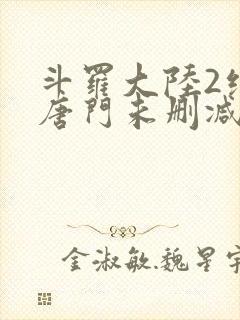 斗羅大陸2
唐門未刪減
金淑敏魏星宇